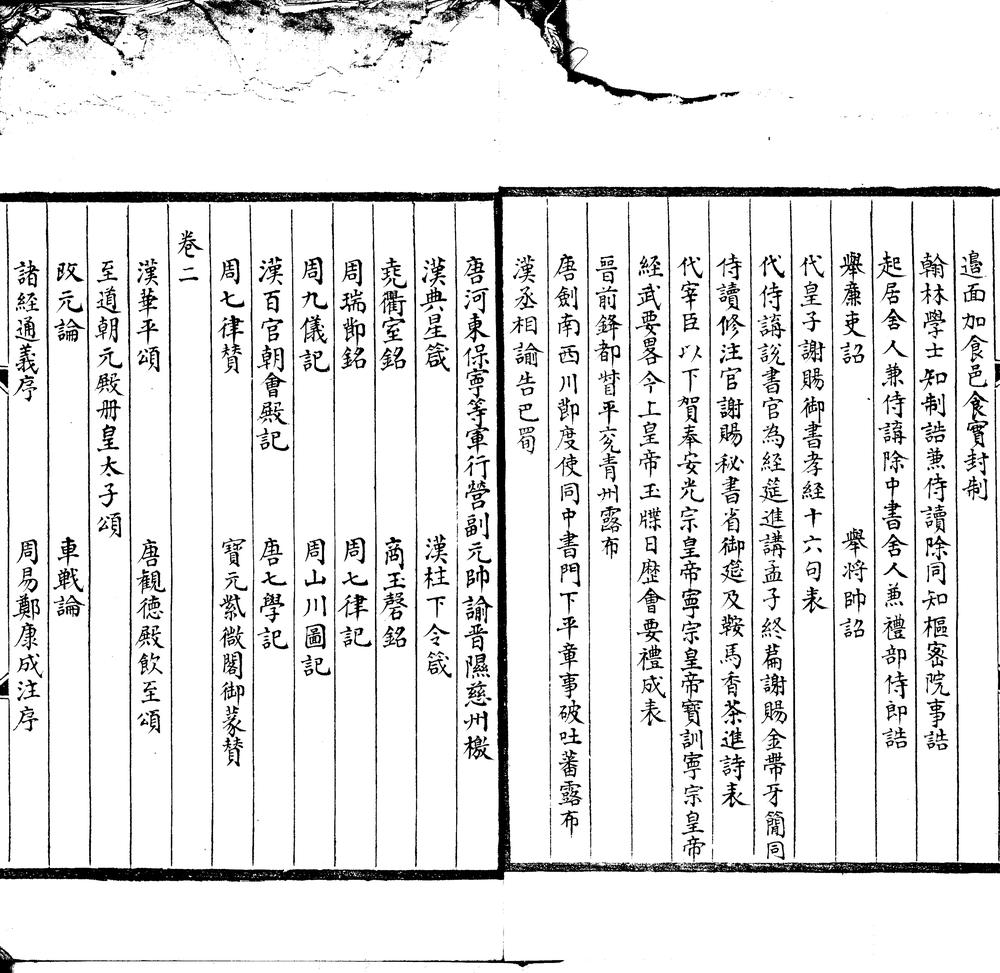 邉面加食邑食實封制
翰林學士知制誥兼侍讀除同知樞宻院事誥
起居舍人兼侍講除中書舍人兼禮部侍郎誥
舉廉吏詔　舉将帥詔
代皇子謝賜御書孝經十六句表
代侍講說書官為經筵進講孟子終篇謝賜金帶牙簡同
侍讀修注官謝賜秘書省御筵及鞍馬香茶進詩表
代宰臣以下賀奉安光宗皇帝寧宗皇帝寶訓寧宗皇帝
經武要畧今上皇帝玉牒日厯會要禮成表
晉前鋒都督平兖青州露布
唐劍南西川節度使同中書門下平章事破吐蕃露布
漢丞相諭告巴蜀
唐河東保寧等軍行營副元帥諭晉隰慈州檄
漢典星箴　漢柱下令箴
堯衢室銘　商玉磬銘
周瑞節銘　周七律記
周九儀記　周山川圖記
漢百官朝會殿記　唐七學記
周七律賛　寶元紫微閣御篆賛
卷二
漢華平頌　唐觀徳殿飲至頌
至道朝元殿册皇太子頌
改元論　車戰論
諸經通義序　周易鄭康成注序